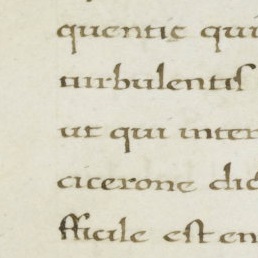 quentis qui
turbulentis
ut qui inter
cicerone dic
fficile est en